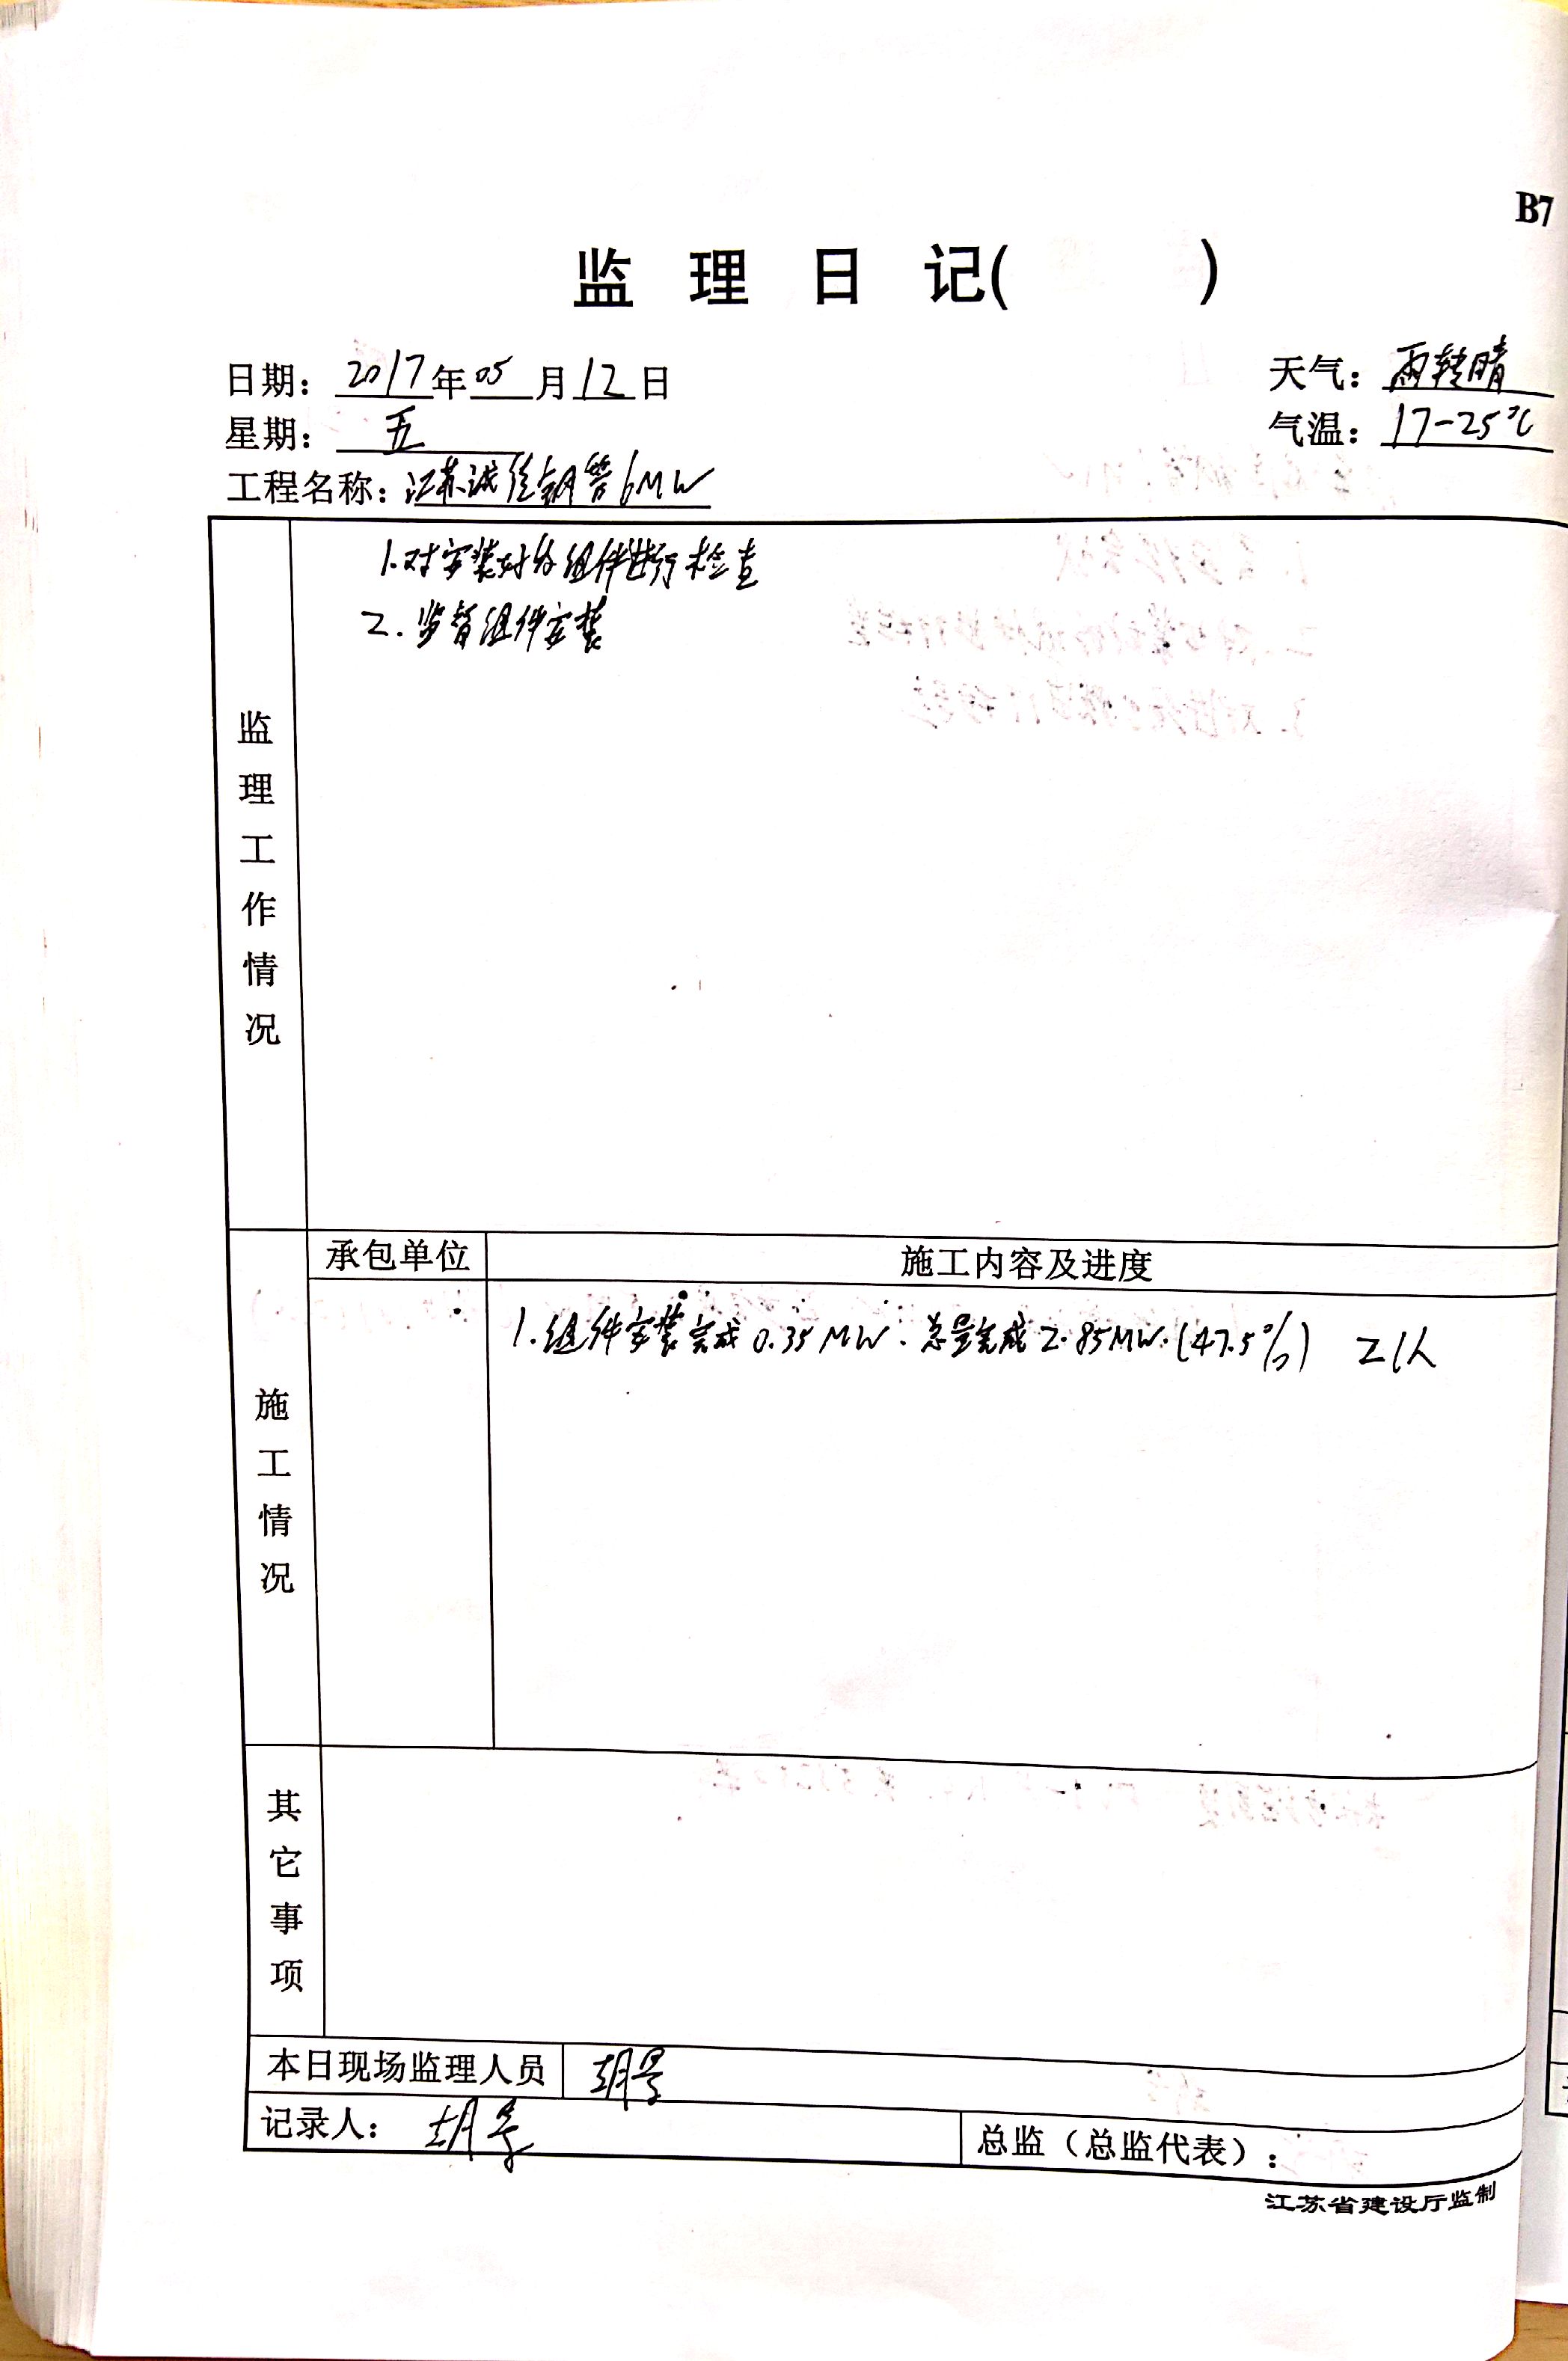 B7
监 理 日 记( )
日期: 2017年05月12日
天气: 雨转晴
星期: 五
气温: 17-25℃
工程名称: 江苏诚 钢管6MW
监理工作情况
1.对安装好的组件进行检查
2.监督组件安装
施工情况
承包单位
施工内容及进度
1.组件安装完成0.35MW.总量完成2.85MW.(47.5%) 21人
其它事项
本日现场监理人员 胡
记录人: 胡
总监(总监代表):
江苏省建设厅监制